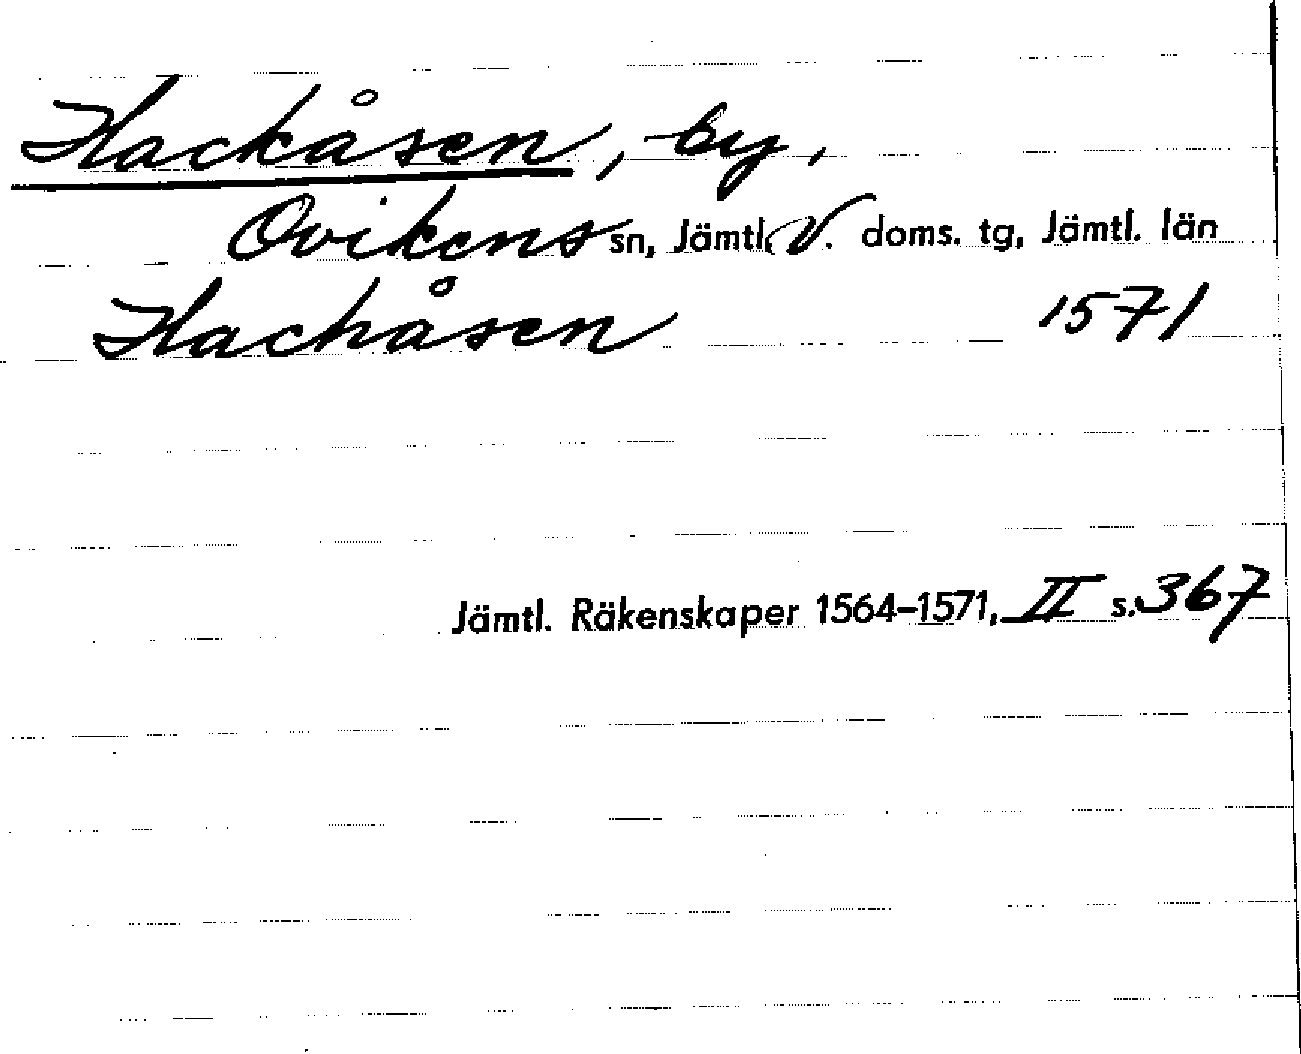 Hackåsen, by,
Ovikens sn, Jämtl. V. doms. tg, Jämtl. län
Hachåsen 1571
Jämtl. Räkenskaper 1564-1571, II s. 367